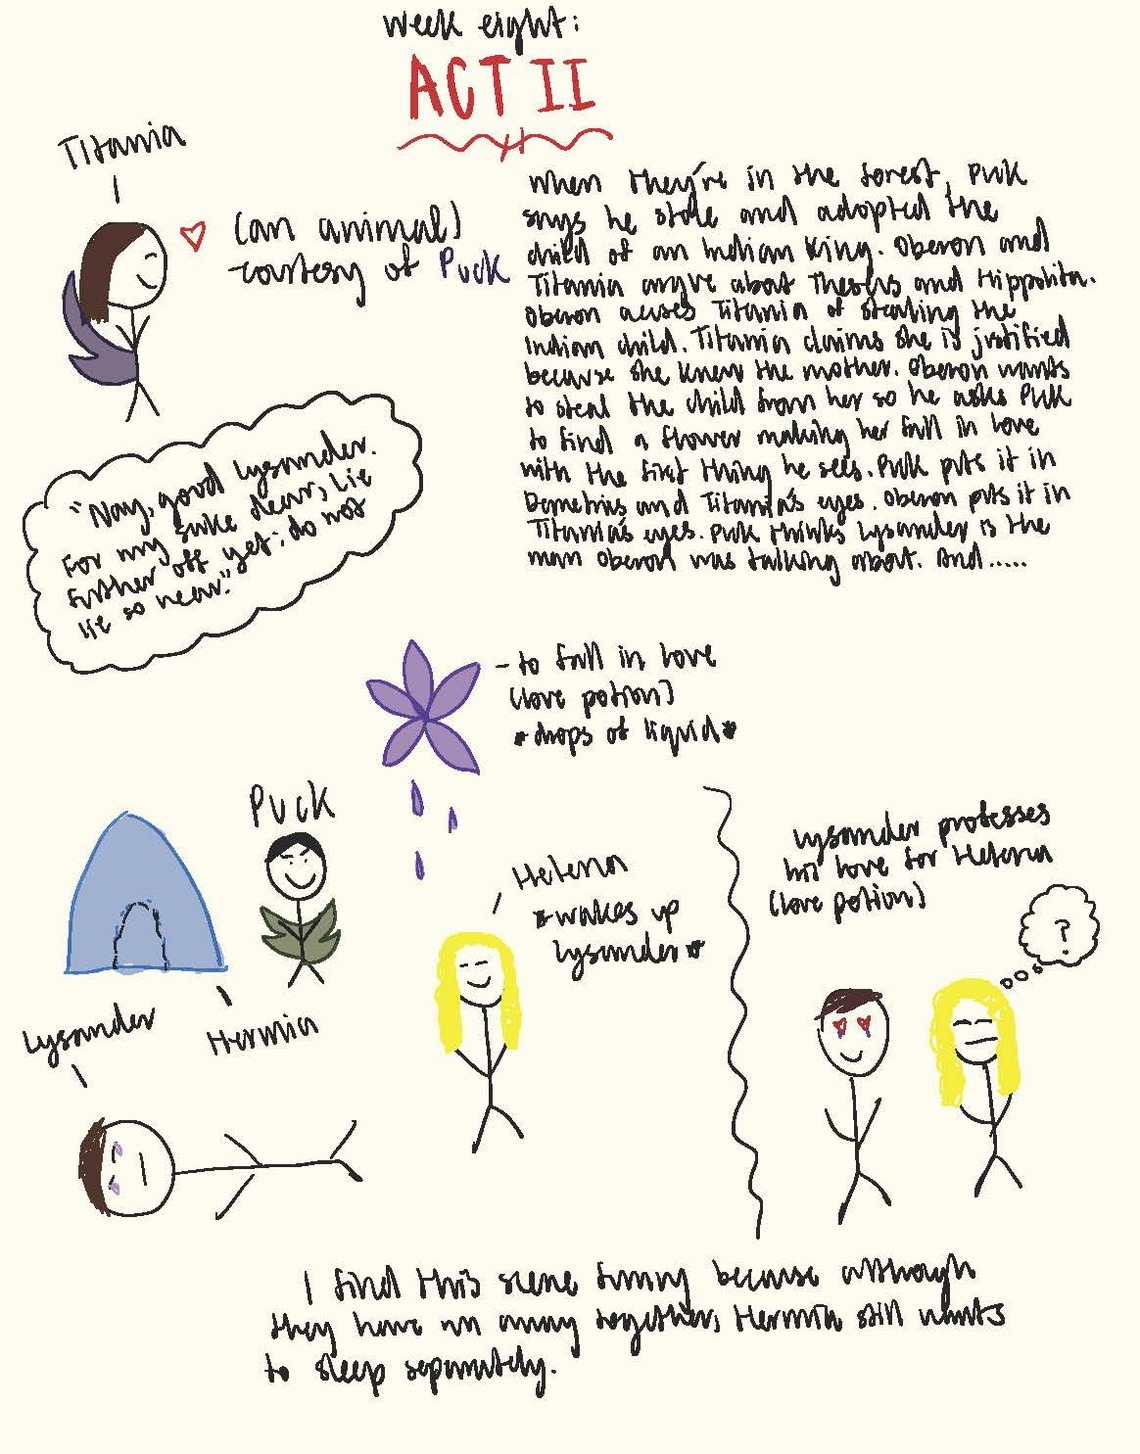 week eight:
ACT II
Titania
(an animal)
courtesy of Puck
When they're in the forest, Puck
says he stole and adopted the
child of an Indian King. Oberon and
Titania argue about Theseus and Hippolita.
Oberon accuses Titania of stealing the
Indian child. Titania claims she is justified
because she knew the mother. Oberon wants
to steal the child from her so he asks Puck
to find a flower making her fall in love
with the first thing he sees. Puck puts it in
Demetrius and Titania's eyes. Oberon puts it in
Titania's eyes. Puck thinks Lysander is the
man Oberon was talking about. And.....
"Nay, good Lysander.
For my sake dear, Lie
further off yet; do not
lie so near."
- to fall in love
(love potion)
*drops of liquid*
Puck
Lysander
Hermia
Helena
*wakes up
Lysander*
Lysander professes
his love for Helena
(love potion)
?
I find this scene funny because although
they have run away together, Hermia still wants
to sleep separately.